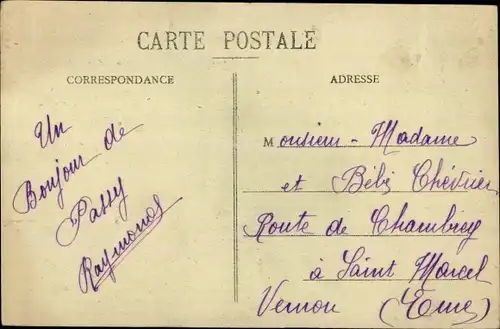 CARTE POSTALE
CORRESPONDANCE
ADRESSE
Un
Bonjour de
Passy
Raymonos
Monsieur - Madame
et Bébé Chévrier
Route de Chambray
à Saint Marcel
Vernon (Eure)